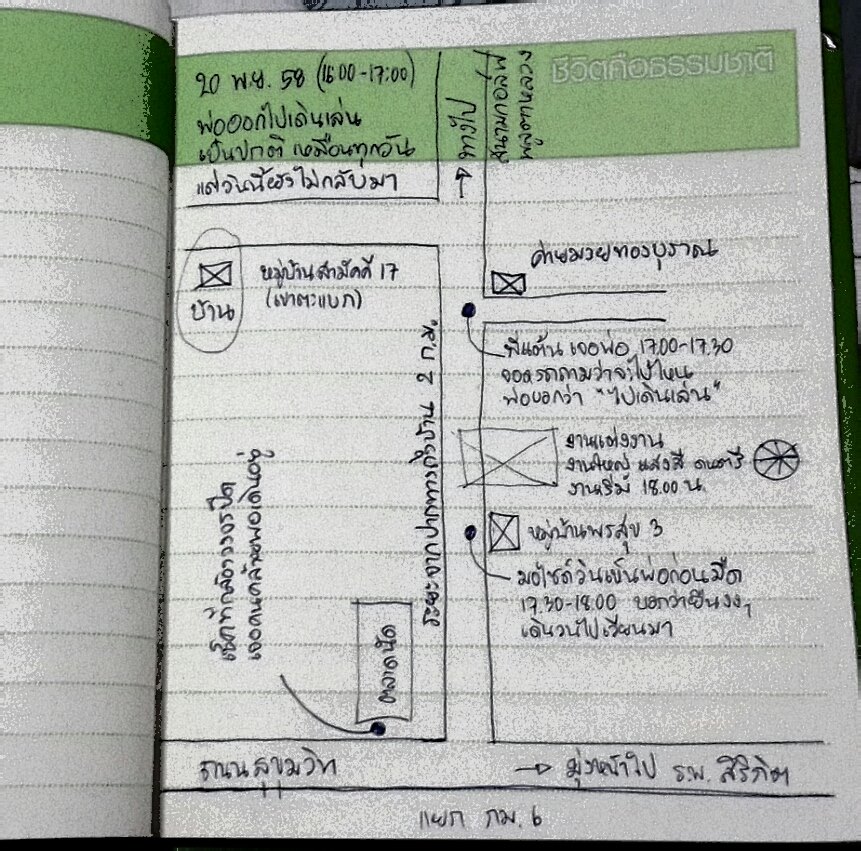 ชีวิตคือธรรมชาติ
20 พ.ย. 58 (16:00-17:00)
พ่อออกไปเดินเล่น
เป็นปกติ เหมือนทุกวัน
แต่วันนี้ยังไม่กลับมา
→ ทางไป
สนามกอล์ฟ
พลูตาหลวง
บ้าน
หมู่บ้านสามัคคี 17
(เขาตะแบก)
ค่ายมวยทองบุราณ
พี่แต้น เจอพ่อ 17.00-17.30
จอดรถถามว่าจะไปไหน
พ่อบอกว่า "ไปเดินเล่น"
ระยะจากปากทางถึงบ้าน 2 ก.ม.
งานแต่งงาน
งานใหญ่ แสงสี ดนตรี
งานเริ่ม 18.00 น.
หมู่บ้านพรสุข 3
มอไซด์วินเห็นพ่อก่อนมืด
17.30-18.00 บอกว่ายืนงงๆ
เดินวนไปเวียนมา
เช็คที่กล้องวงจรปิด
เจอคนคล้ายพ่อเดินอยู่
ตลาดนัด
ถนนสุขุมวิท
→ มุ่งหน้าไป ร.พ. สิริกิต
แยก กม. 6